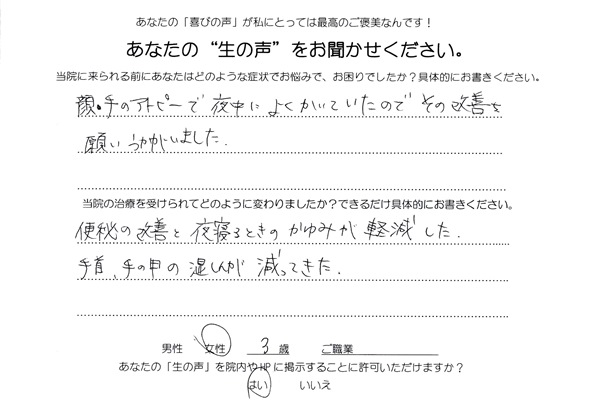 あなたの「喜びの声」が私にとっては最高のご褒美なんです！
あなたの“生の声”をお聞かせください。
当院に来られる前にあなたはどのような症状でお悩みで、お困りでしたか？具体的にお書きください。
顔・手のアトピーで夜中によくかいていたのでその改善を
願いうかがいました.
当院の治療を受けられてどのように変わりましたか？できるだけ具体的にお書きください。
便秘の改善と夜寝るときのかゆみが軽減した.
手首、手の甲の湿しんが減ってきた.
男性 女性 3 歳 ご職業
あなたの「生の声」を院内やHPに掲示することに許可いただけますか？
はい いいえ